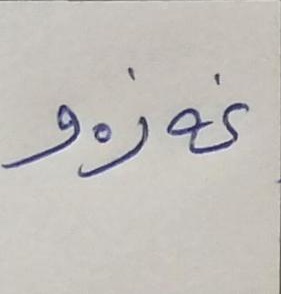 غەزەو